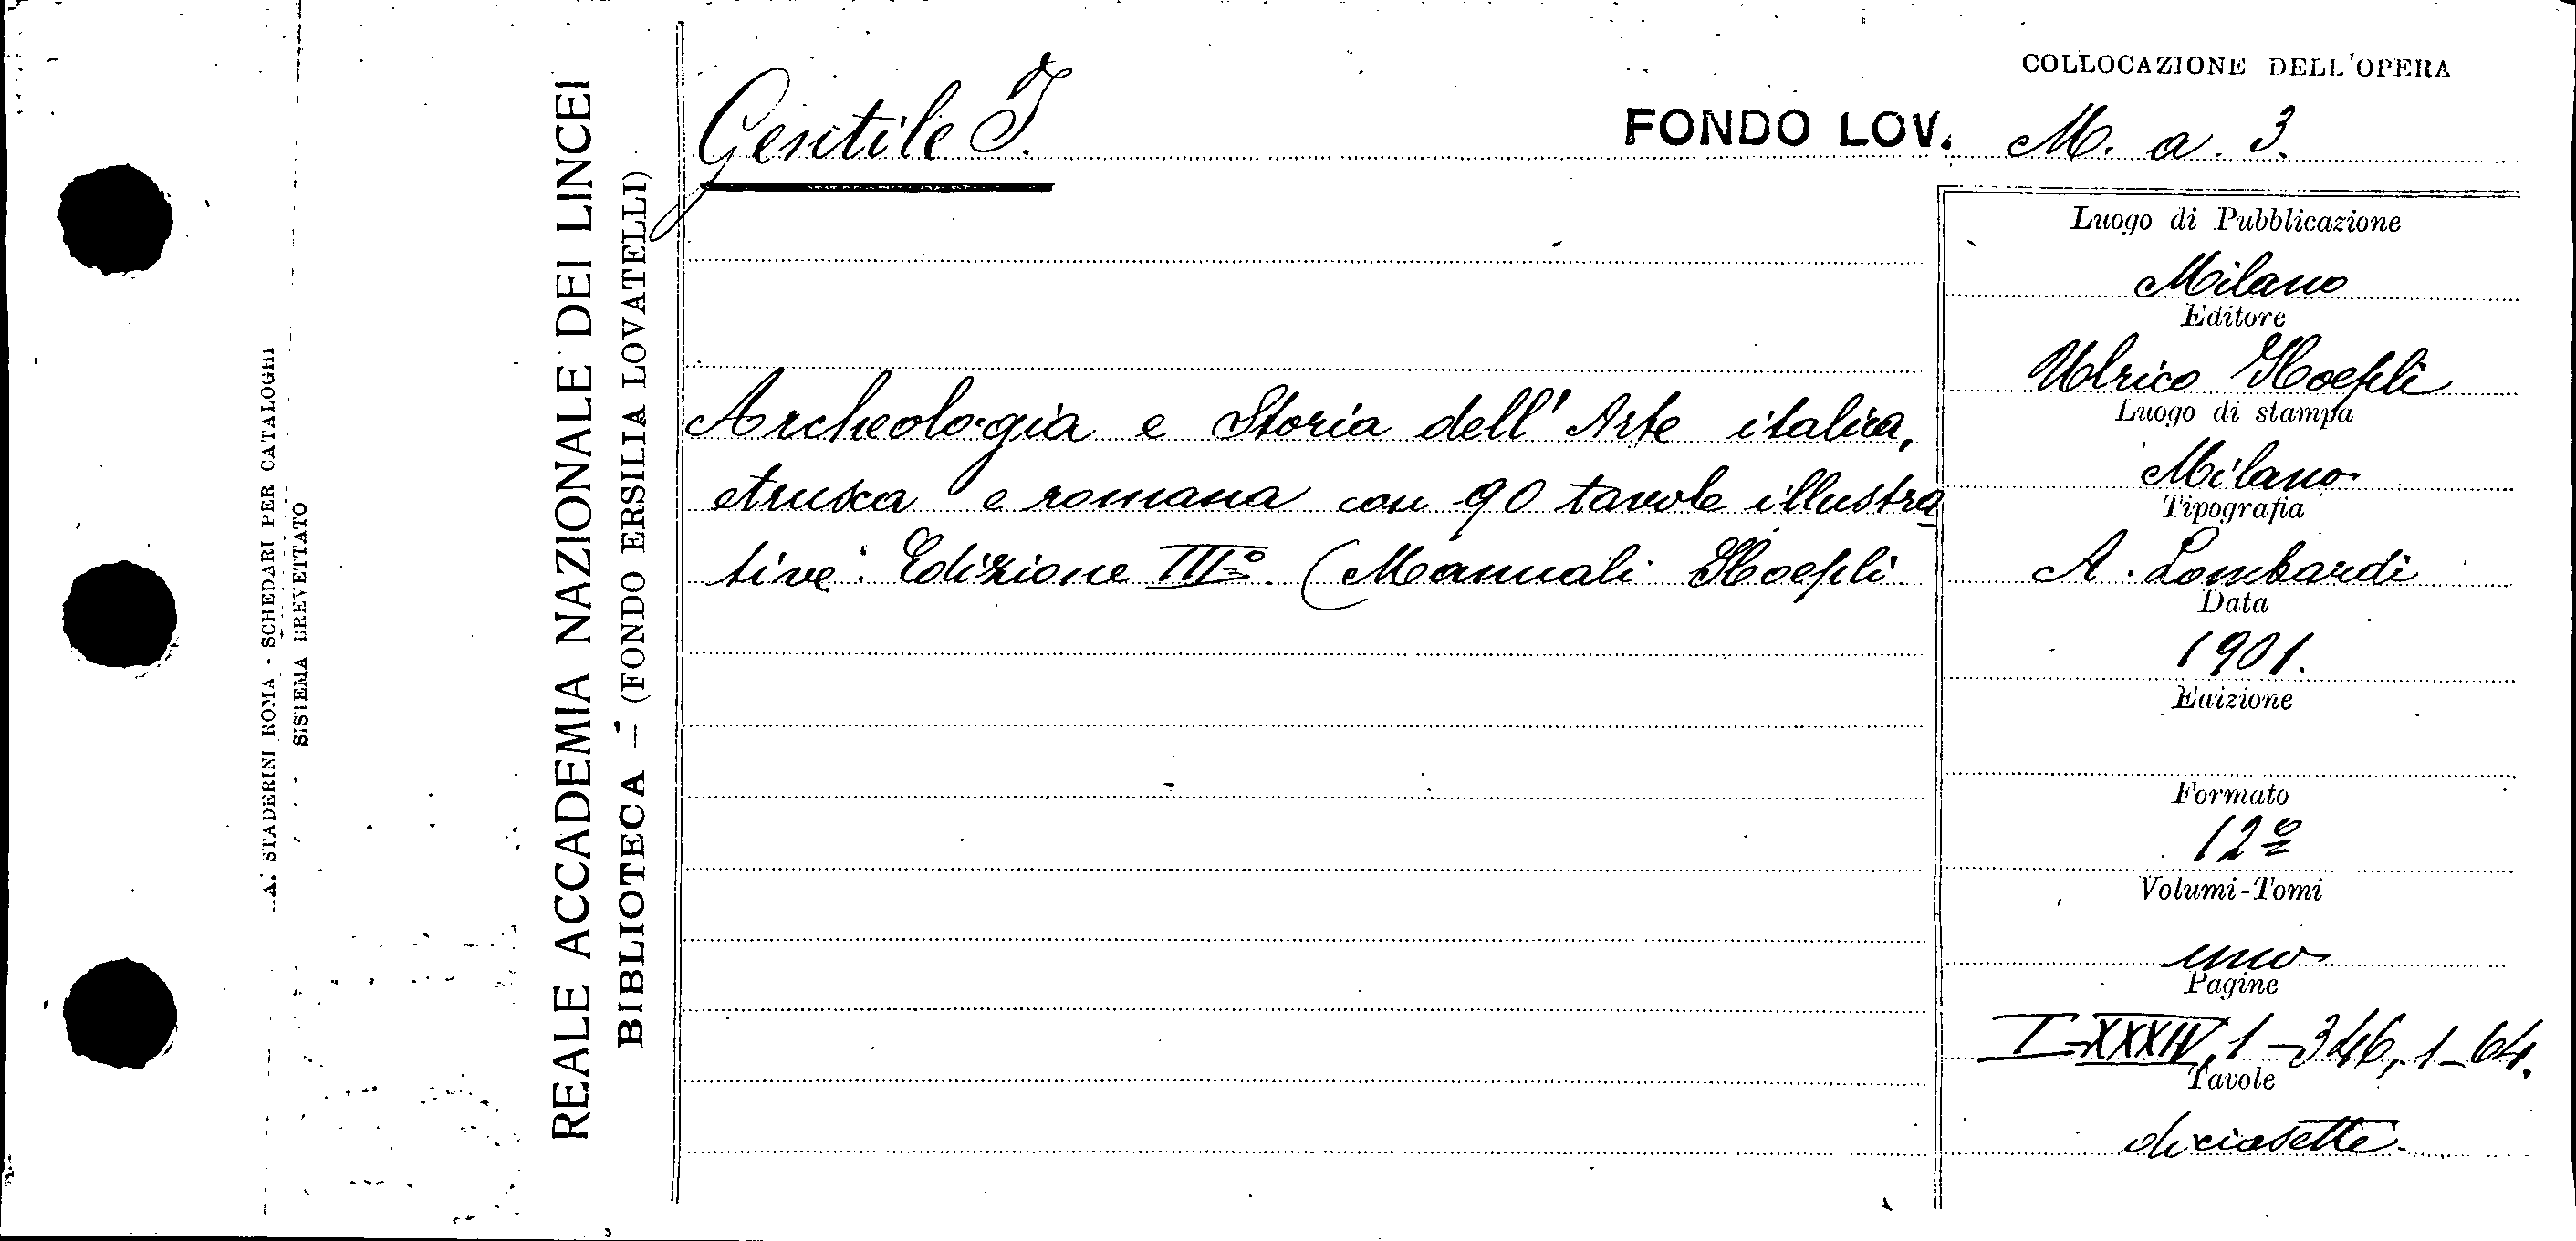 A. STADERINI ROMA - SCHEDARI PER CATALOGHI
SISTEMA BREVETTATO
REALE ACCADEMIA NAZIONALE DEI LINCEI
BIBLIOTECA - (FONDO ERSILIA LOVATELLI)
Gentile I.
COLLOCAZIONE DELL'OPERA
FONDO LOV. M. a. 3.
Archeologia e Storia dell'Arte italica,
etrusca e romana con 90 tavole illustra
tive. Edizione IIIº. (Manuali Hoepli
Luogo di Pubblicazione
Milano
Editore
Ulrico Hoepli
Luogo di stampa
Milano
Tipografia
A. Lombardi
Data
1901.
Edizione
Formato
12º
Volumi-Tomi
uno
Pagine
I-XXXIV, 1-346, 1-64.
Tavole
diciasette.